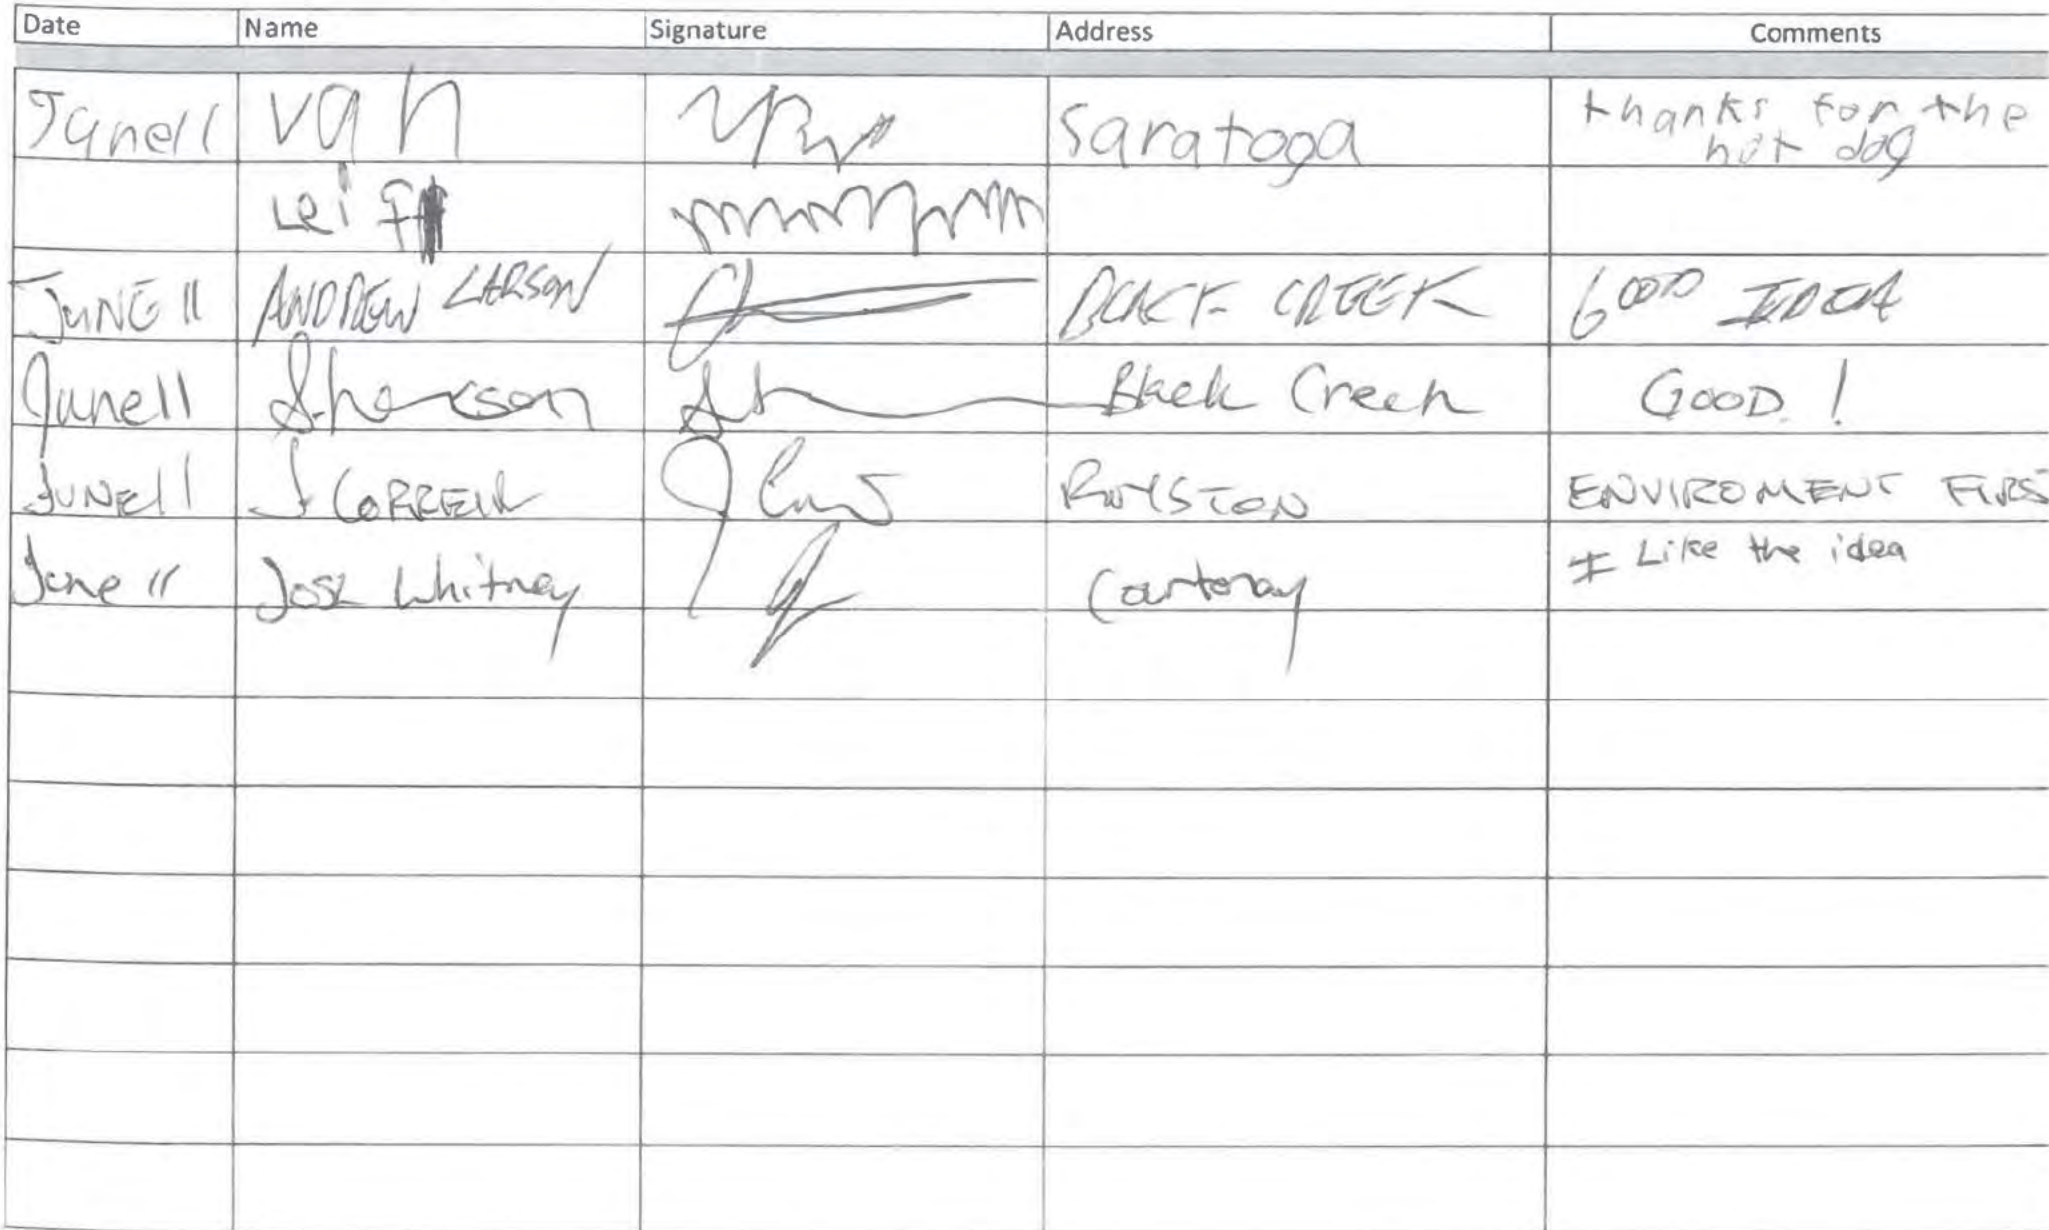 Date Name Signature Address Comments
June 11 van Saratoga thanks for the
hot dog
Leif
JUNE 11 ANDREW LARSON BLACK CREEK GOOD IDEA
June 11 Black Creek GOOD!
JUNE 11 J ROYSTON ENVIROMENT FIRS
June 11 Josh Whitney Courtenay I Like the idea